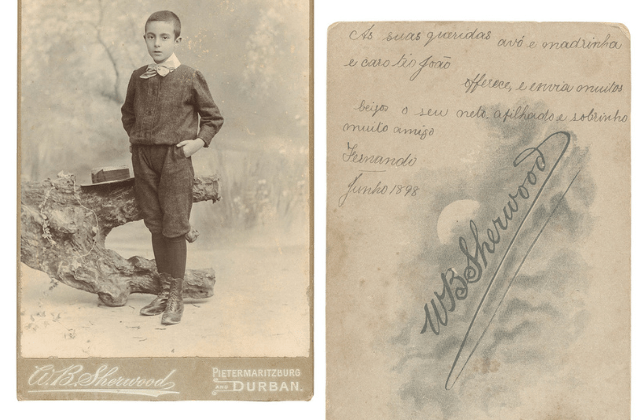 W.B. Sherwood
PIETERMARITZBURG
AND DURBAN.
Ás suas queridas avó e madrinha
e caro tio João
offerece, e envia muitos
beijos o seu neto, afilhado e sobrinho
muito amigo
Fernando
Junho 1898
WB Sherwood